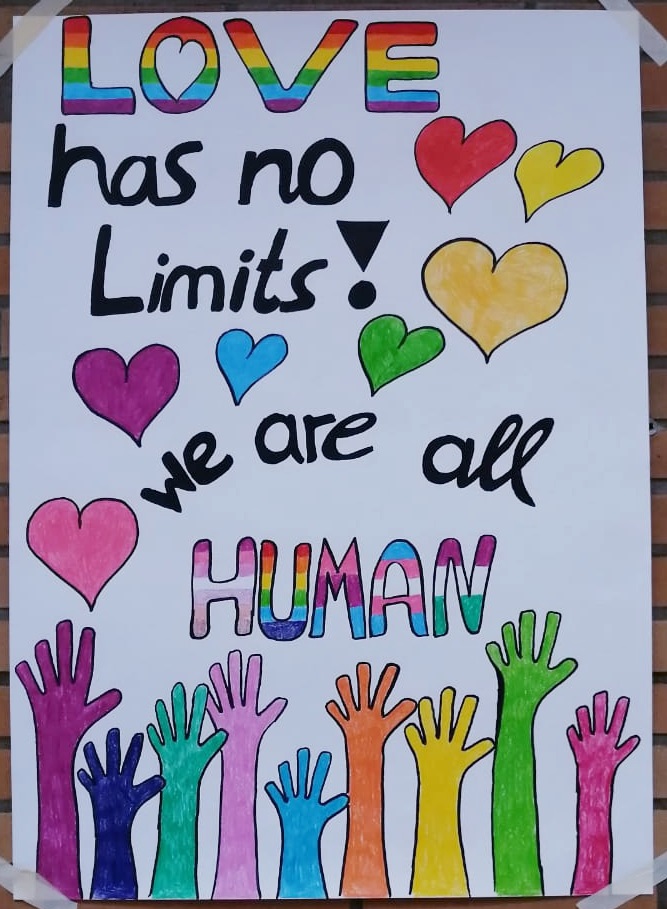 LOVE
has no
Limits!
we are all
HUMAN